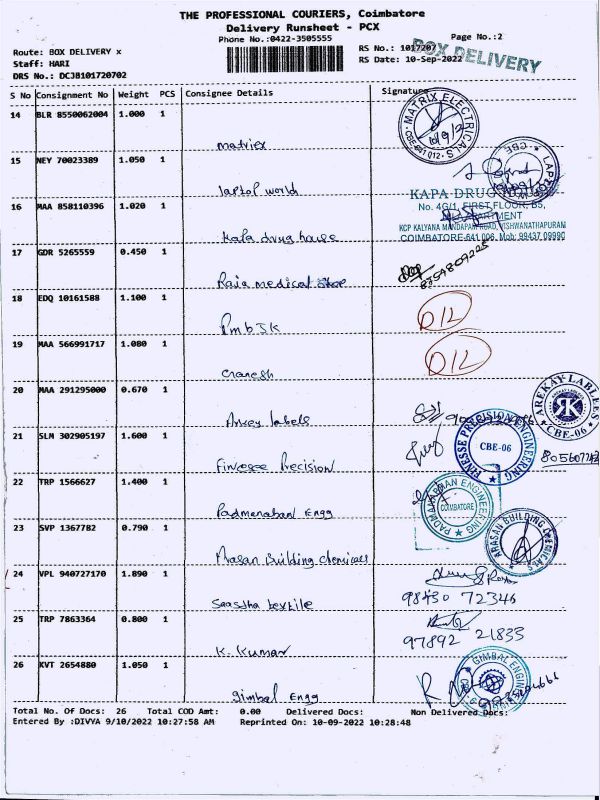 THE PROFESSIONAL COURIERS, Coimbatore
Delivery Runsheet - PCX
Phone No.:0422-3505555
Page No.:2
Route: BOX DELIVERY x
RS No.: 1017207
BOX DELIVERY
Staff: HARI
RS Date: 10-Sep-2022
DRS No.: DCJB101720702
S No Consignment No Weight PCS Consignee Details Signature
14 BLR 8550062004 1.000 1
MATRIX ELECTRICALS
CBE-641 012
matriex
15 NEY 70023389 1.050 1
CBE
laptol world
16 MAA 858110396 1.020 1
KAPA DRUG
No. 4G/1, FIRST FLOOR, B5,
KCP KALYANA MANDAPAM ROAD, VISHWANATHAPURAM
COIMBATORE-641 006. Mob: 99437 09990
Kala drug house
17 GDR 5265559 0.450 1
Raja medical
18 EDQ 10161588 1.100 1
PmbJK
19 MAA 566991717 1.080 1
Ganesh
20 MAA 291295000 0.670 1
AREKAY LABLEES
RK
CBE-06
Arkey labels
21 SLM 302905197 1.600 1
FINESSE PRECISION ENGINEERING
CBE-06
Finvesee Precision
22 TRP 1566627 1.400 1
PADMANABHAN ENGINEERING
COIMBATORE
Padmanaban Engg
23 SVP 1367782 0.790 1
ARASAN BUILDING CHEMICALS
Arasan Building chemicals
24 VPL 940727170 1.890 1
98430 72346
Saastha textile
25 TRP 7863364 0.800 1
97892 21833
K. Kumar
26 KVT 2654880 1.050 1
GIMBAL ENGG
Gimbal Engg
Total No. Of Docs: 26 Total COD Amt: 0.00 Delivered Docs: Non Delivered Docs:
Entered By :DIVYA 9/10/2022 10:27:58 AM Reprinted On: 10-09-2022 10:28:48